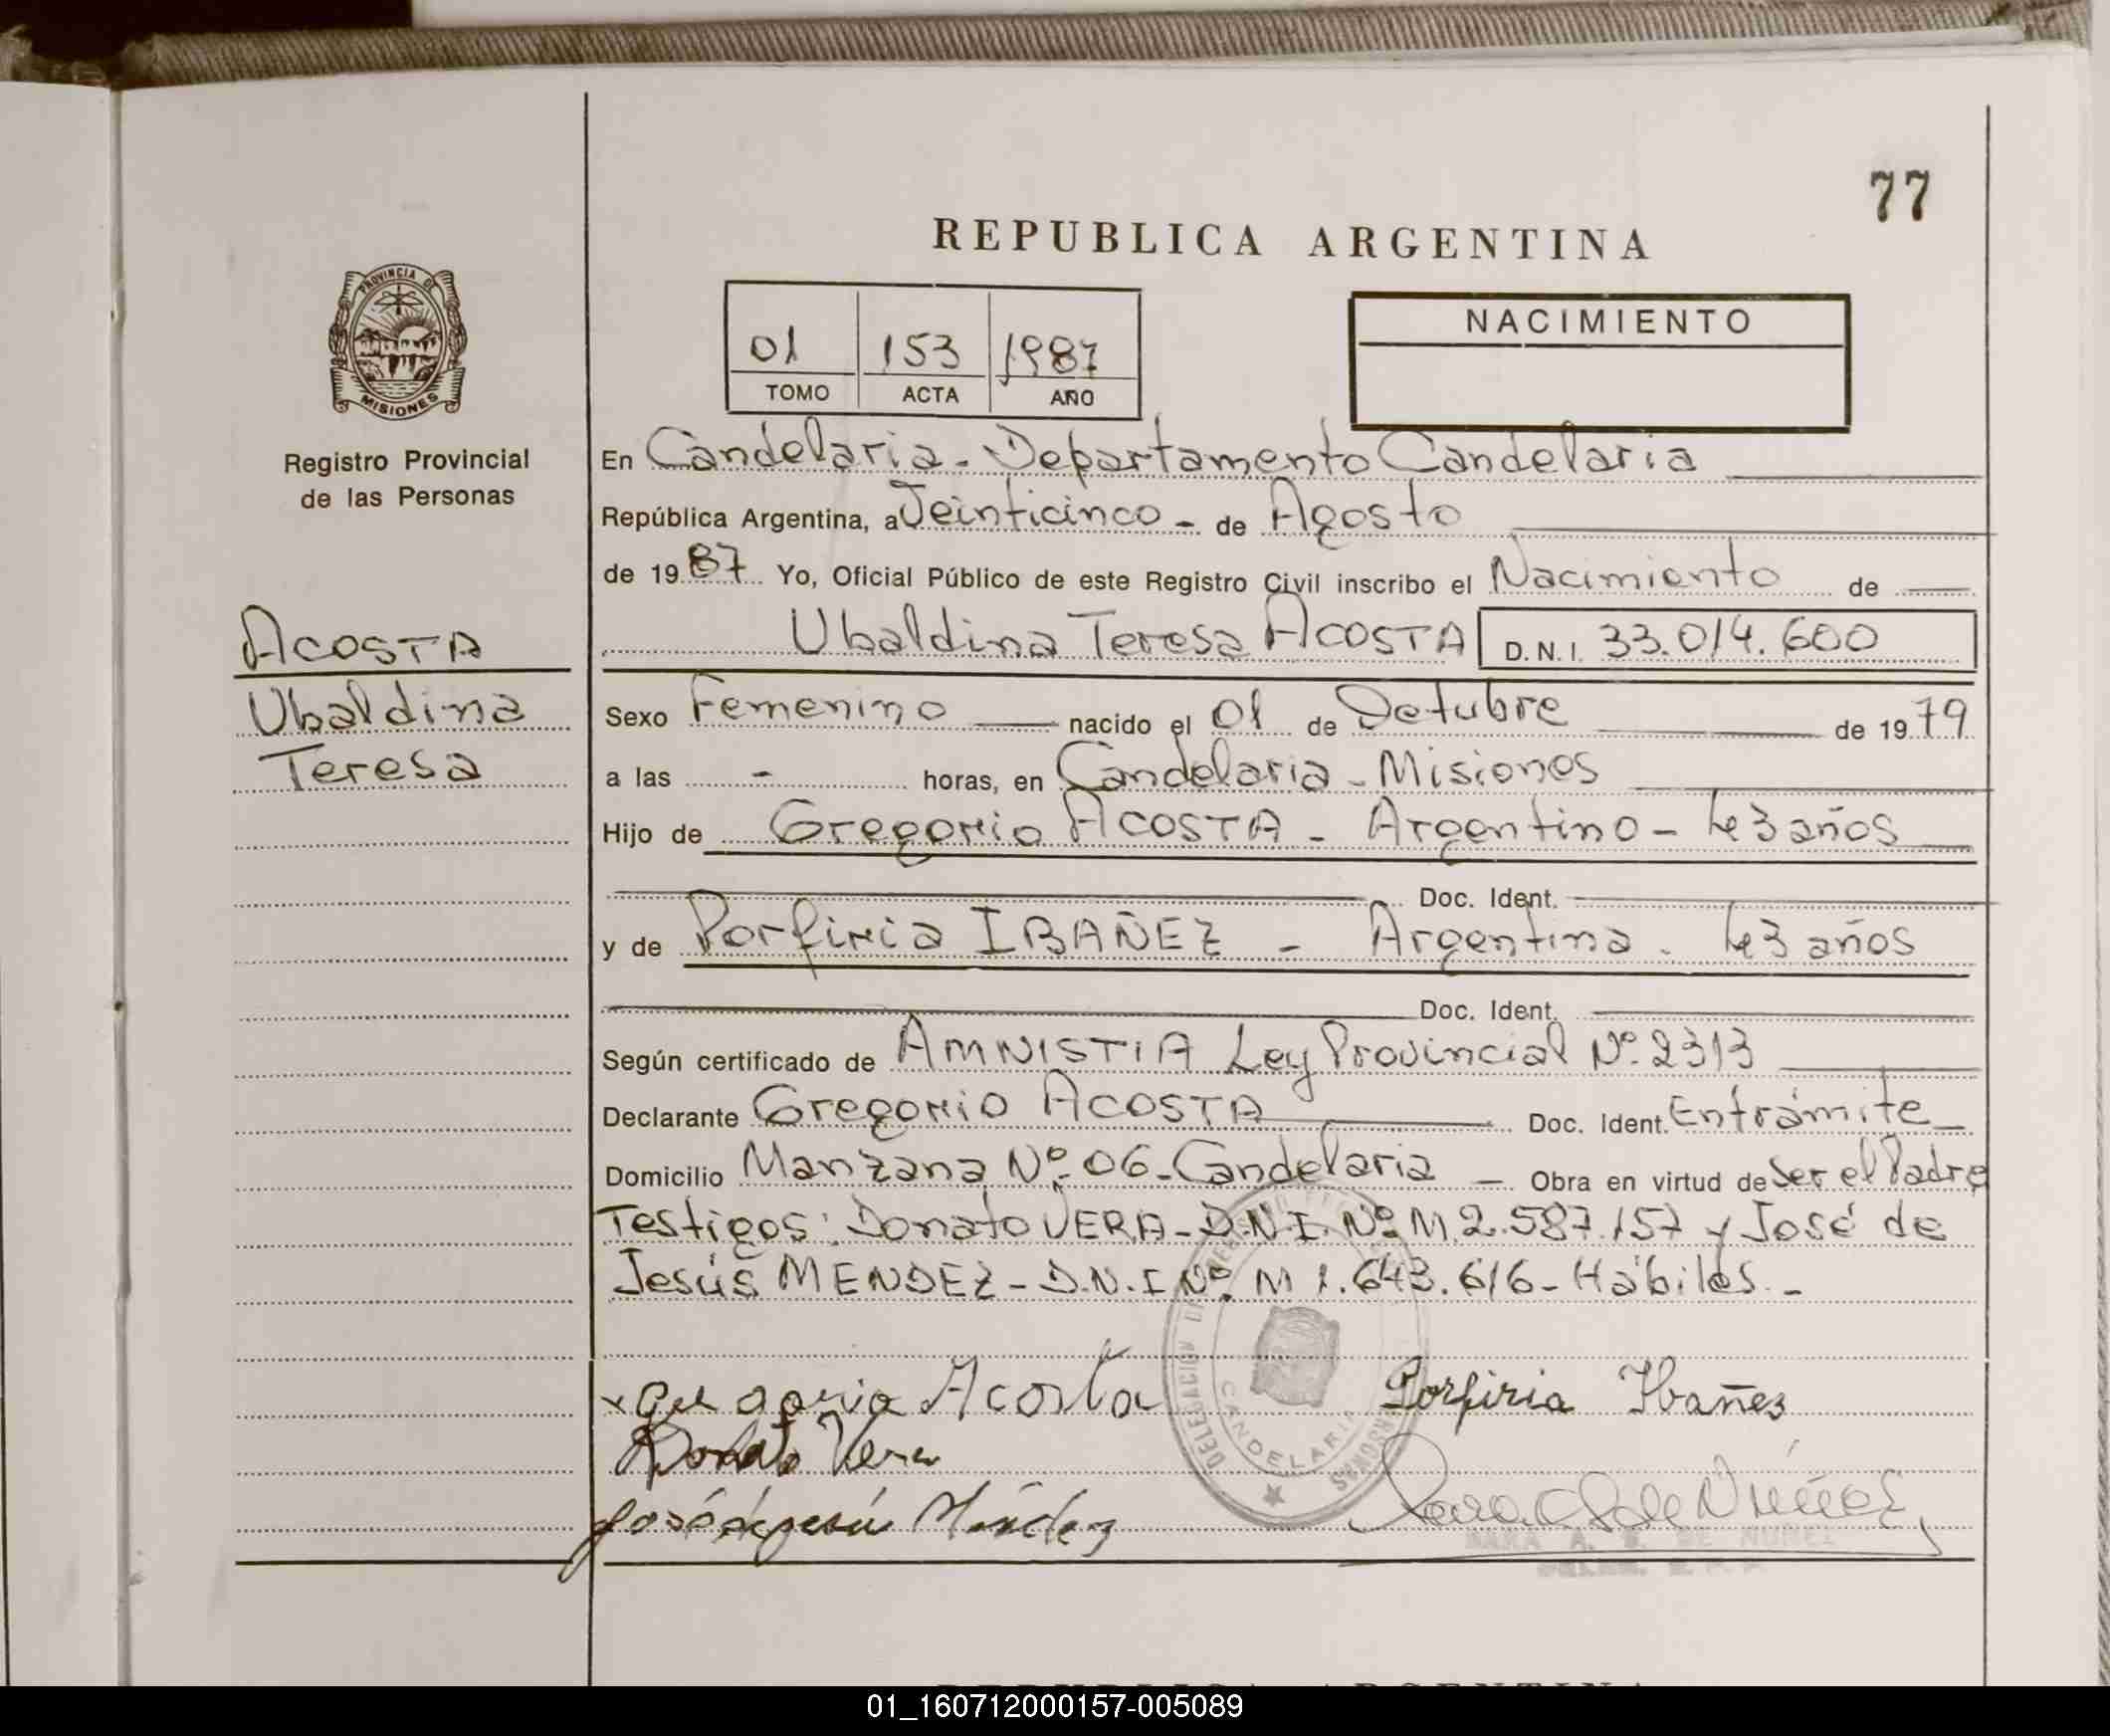 77
REPUBLICA ARGENTINA
PROVINCIA DE
MISIONES
Registro Provincial
de las Personas
01 153 1987
TOMO ACTA AÑO
NACIMIENTO
En Candelaria - Departamento Candelaria
República Argentina, a Veinticinco - de Agosto
de 1987 Yo, Oficial Público de este Registro Civil inscribo el Nacimiento de
Ubaldina Teresa ACOSTA D.N.I. 33.014.600
ACOSTA
Ubaldina
Teresa
Sexo Femenino nacido el 01 de Octubre de 1979
a las - horas, en Candelaria - Misiones
Hijo de Gregorio ACOSTA - Argentino - 43 años
Doc. Ident.
y de Porfiria IBAÑEZ - Argentina - 43 años
Doc. Ident.
Según certificado de AMNISTIA Ley Provincial Nº 2313
Declarante Gregorio ACOSTA Doc. Ident. Entrámite
Domicilio Manzana Nº 06 - Candelaria - Obra en virtud de Ser el Padre
Testigos: Donato VERA - D.N.I. Nº M 2.587.157 y José de
Jesús MENDEZ - D.N.I Nº M 1.643.616 - Hábiles. -
Acosta
Porfiria Ibañez
Donato Vera
CANDELARIA
DE NUÑEZ
01_160712000157-005089